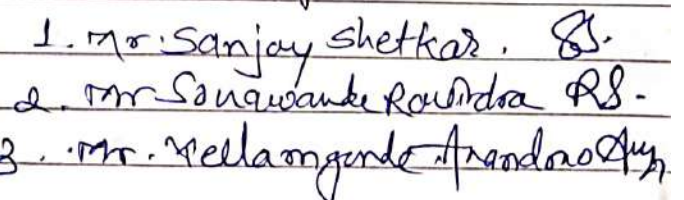 1. Mr. Sanjay Shetkar. SS.
2. Mr Sonawande Ravindra RS-
3. Mr. Yellamgonde Anandrao